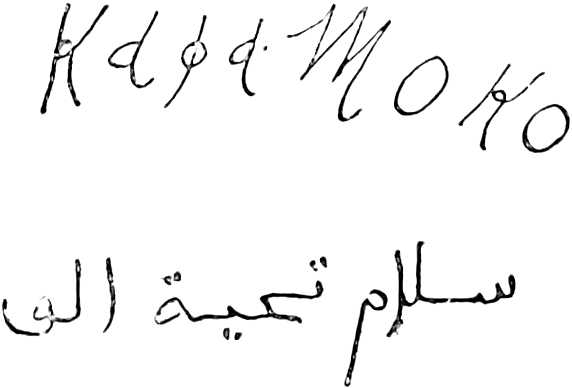 Kada Moko
سلام تحية الى